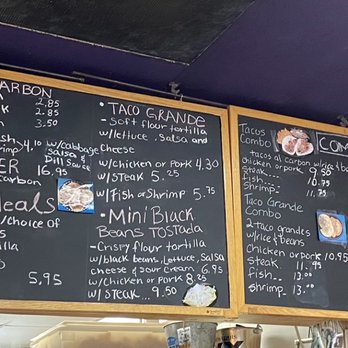 ARBON
2.85
2.85
3.50
4.10 w/cabbage
Salsa &
Dill Sauce
ER 16.95
Carbon
eals
/choice of
5.95
• TACO GRANDE
- Soft flour tortilla
w/lettuce, Salsa and
cheese
w/chicken or Pork 4.30
w/STEAK 5.25
w/Fish or Shrimp 5.75
• Mini Black
Beans TOSTADA
- Crispy flour tortilla
w/black beans, Lettuce, Salsa
cheese & Sour Cream 6.95
w/Chicken or Pork 8.25
w/STEAK ... 9.50
Tacos
Combo
COM
tacos al carbon w/rice & b
chicken or pork 9.50
steak... 10.95
fish..
shrimp.. 11.75
Taco Grande
Combo
2-taco grandes
w/rice & beans
Chicken or pork 10.95
steak ... 11.95
fish.. 13.00
shrimp.. 13.00